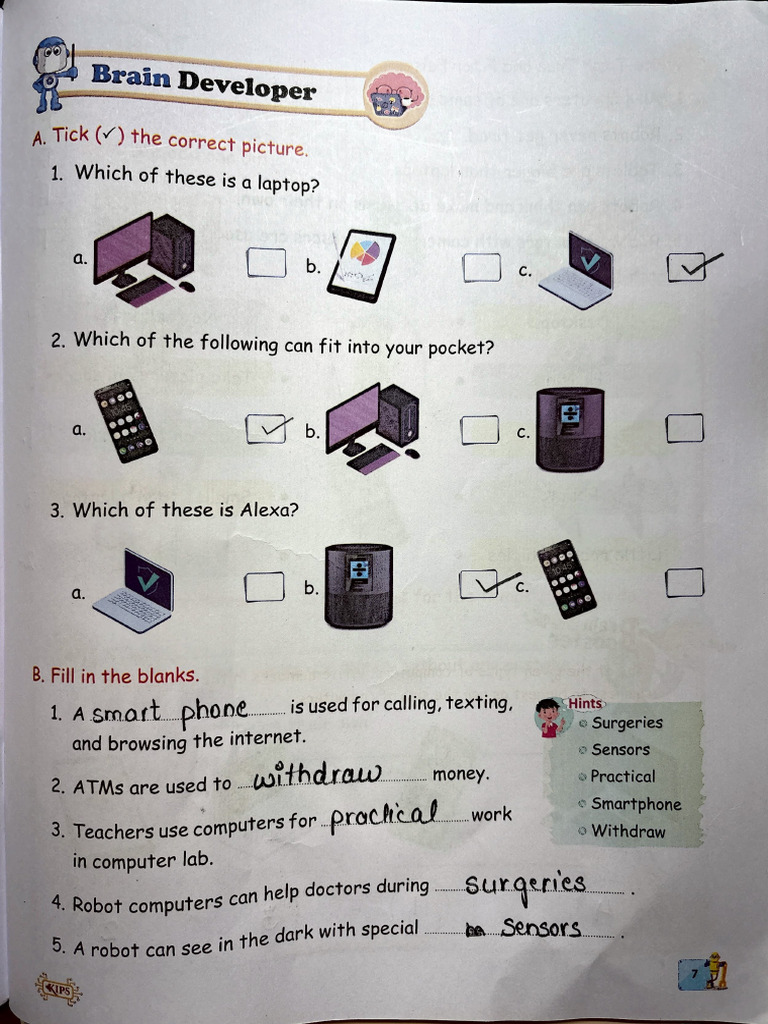 Brain Developer
A. Tick (✓) the correct picture.
1. Which of these is a laptop?
a. b. c. ✓
2. Which of the following can fit into your pocket?
a. ✓ b. c.
3. Which of these is Alexa?
a. b. ✓ c.
B. Fill in the blanks.
1. A smart phone is used for calling, texting,
and browsing the internet.
2. ATMs are used to withdraw money.
3. Teachers use computers for practical work
in computer lab.
4. Robot computers can help doctors during surgeries.
5. A robot can see in the dark with special sensors.
Hints
Surgeries
Sensors
Practical
Smartphone
Withdraw
KIPS
7